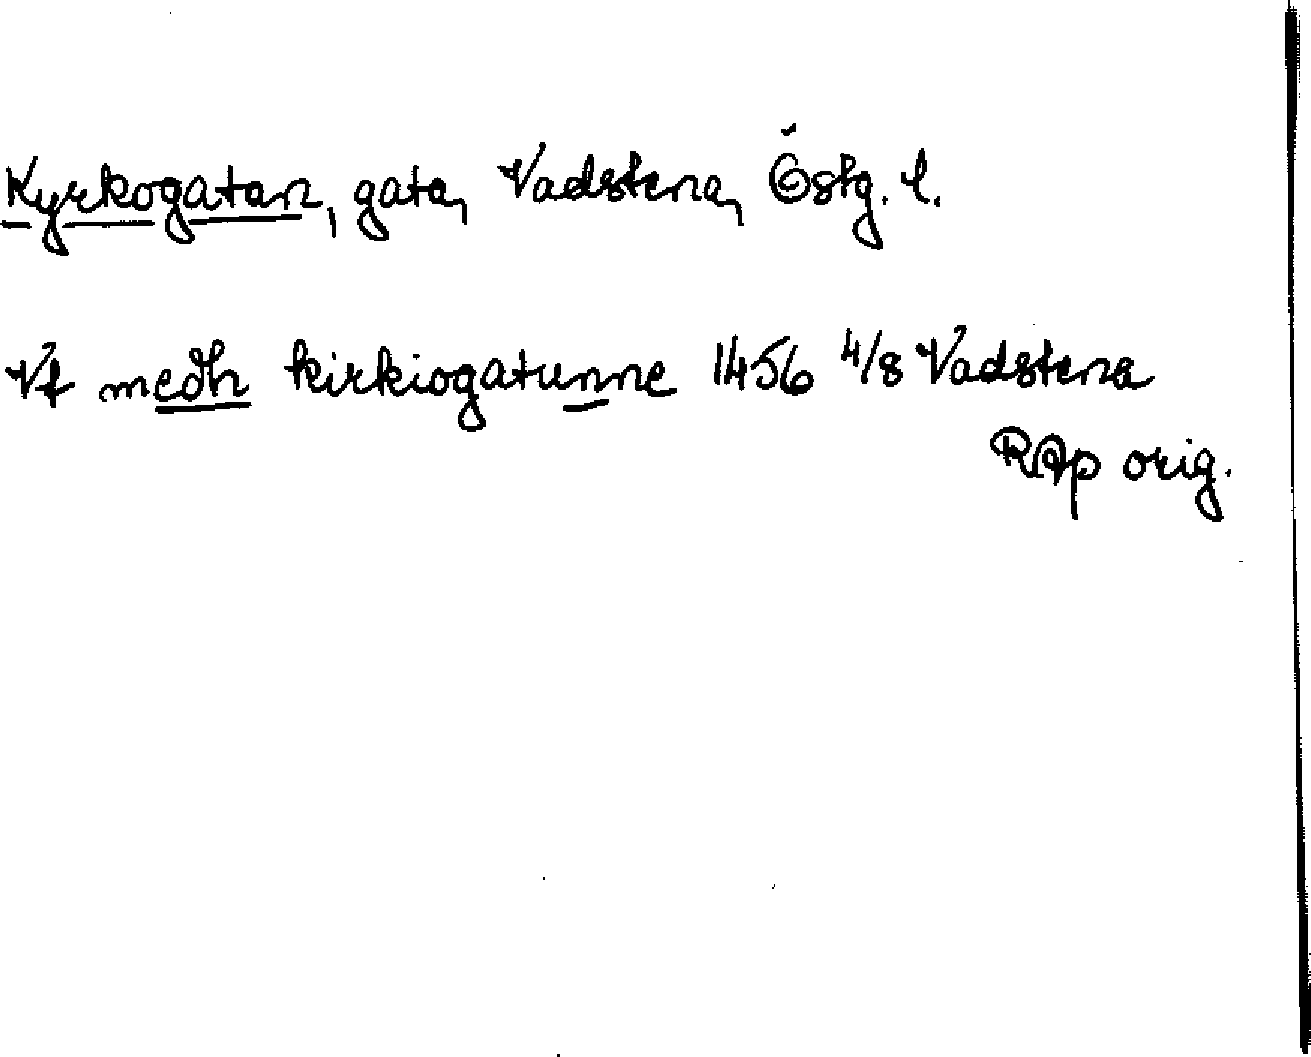 Kyrkogatan, gata, Vadstena, Östg. l.
Vt medh kirkiogatunne 1456 4/8 Vadstena
RAp orig.